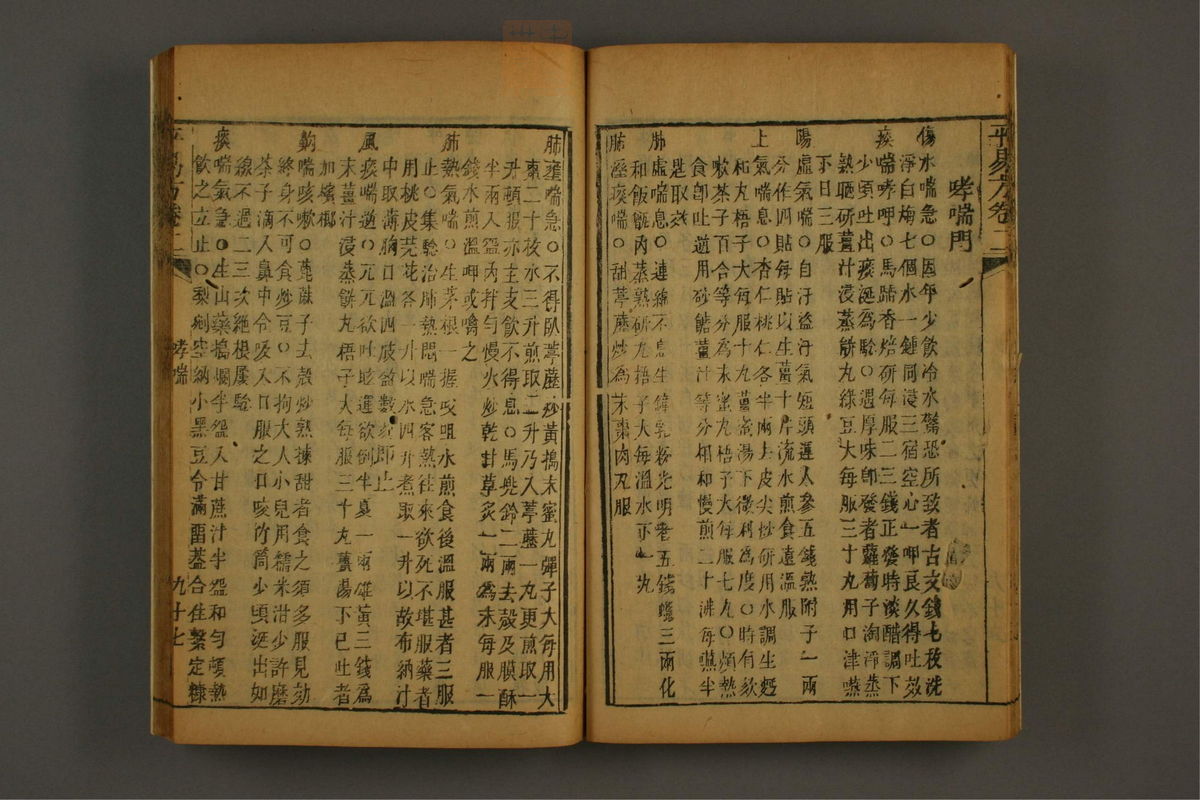 平易方卷二
哮喘門
傷水喘急○因年少飲冷水驚恐所致者古文錢七枚洗
淨白梅七個水一鍾同浸三宿空心一呷良久得吐效
痰喘哮呷○馬蹄香焙研每服二三錢正發時淡醋調下
少頃吐出痰涎為驗○遇厚味即發者蘿蔔子淘淨蒸
熟晒研薑汁浸蒸餅丸綠豆大每服三十丸用口津嚥
下日三服
陽虛氣喘○自汗盜汗氣短頭運人參五錢熟附子一兩
分作四貼每貼以生薑十片流水煎食遠溫服
上氣喘息○杏仁桃仁各半兩去皮尖炒研用水調生麪
和丸梧子大每服十丸薑湯下微利為度○時有欬
嗽茶子百合等分為末蜜丸梧子大每服七丸○煩熱
食卽吐逆用砂餹薑汁等分相和慢煎二十沸每嚥半
匙取效
肺虛喘息○連綿不息生鐘乳粉光明者五錢蠟三兩化
和飯甑內蒸熟研丸梧子大每溫水下一丸
肺溼痰喘○甜葶藶炒為末棗肉丸服
肺壅喘急○不得臥葶藶炒黃搗末蜜丸彈子大每用大
棗二十枚水三升煎取二升乃入葶藶一丸更煎取一
升頓服亦主支飲不得息○馬兜鈴二兩去殼及膜酥
半兩入盌內拌勻慢火炒乾甘草炙一兩為末每服一
錢水煎溫呷或噙之
肺熱氣喘○生茅根一握㕮咀水煎食後溫服甚者三服
止○集驗治肺熱悶喘急客熱往來欲死不堪服藥者
用桃皮芫花各一升以水四升煮取一升以故布納汁
中取薄胸口溫四肢盈數刻卽止
風痰喘逆○兀兀欲吐眩運欲倒半夏一兩雄黃三錢為
末薑汁浸蒸餅丸梧子大每服三十丸薑湯下已吐者
加檳榔
齁喘咳嗽○蓖蔴子去殼炒熟揀甜者食之須多服見効
終身不可食炒豆○不拘大人小兒用糯米泔少許磨
茶子滴入鼻中令吸入口服之口咬竹筒少頃涎出如
線不過二三次絕根屢驗
痰喘氣急○生山藥搗爛半盌入甘蔗汁半盌和勻頓熱
飲之立止○梨剜空納小黑豆令滿留葢合住繫定糠
平易方卷二
哮喘
九十七